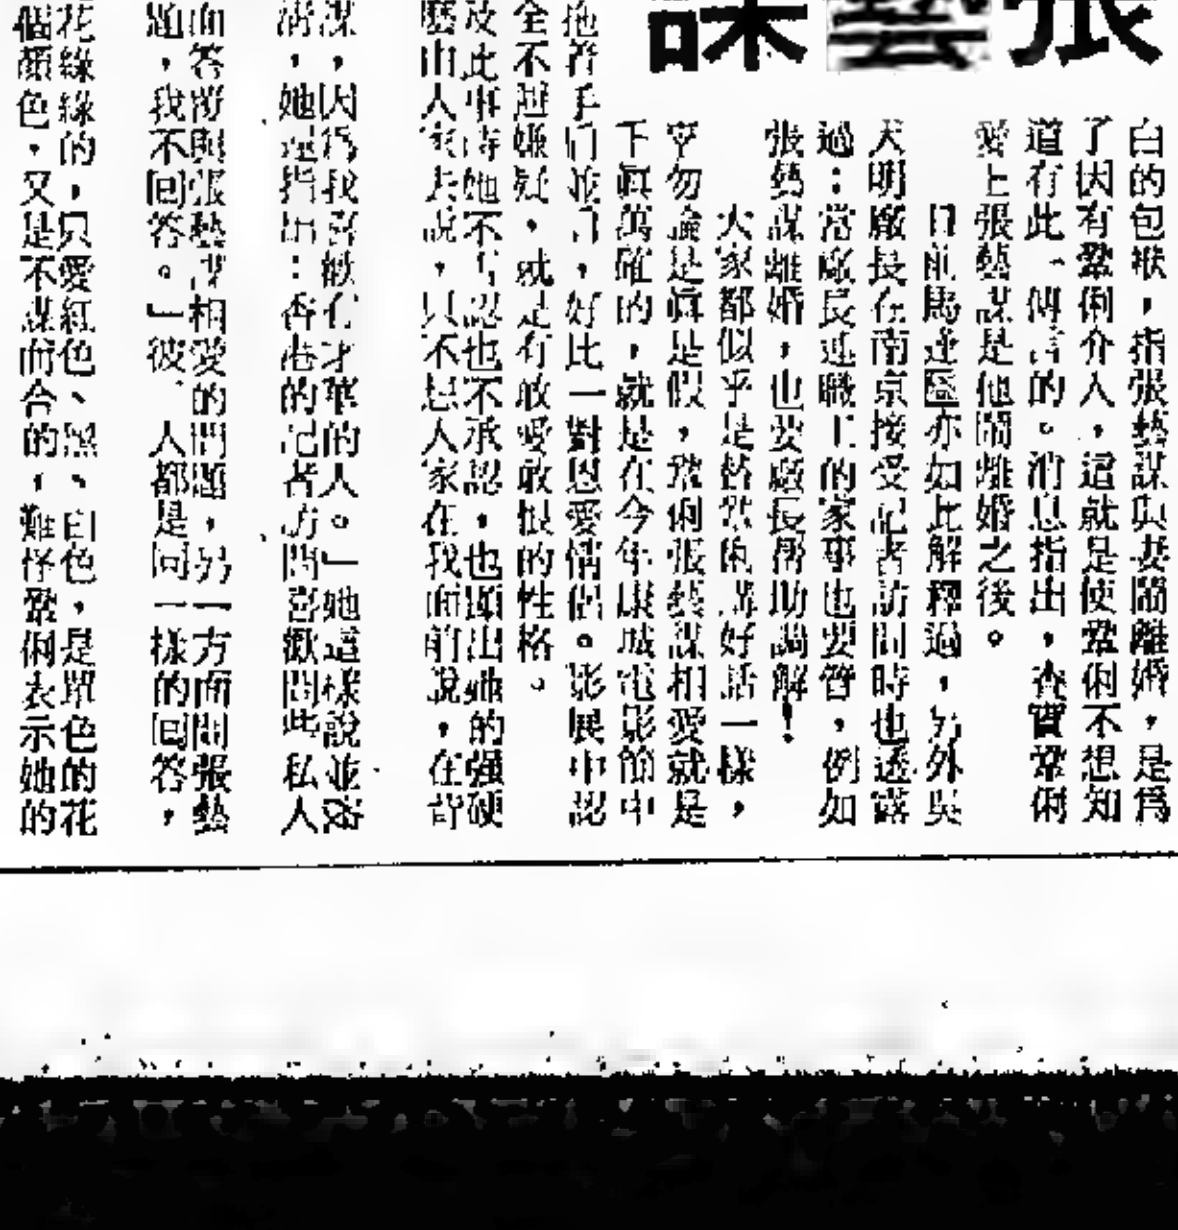 張藝謀
白的包袱，指張藝謀與妻鬧離婚，是爲
了因有鞏俐介入，這就是使鞏俐不想知
道有此一傳言的。消息指出，查實鞏俐
愛上張藝謀是他鬧離婚之後。
日前馬 亦如此解釋過，另外吳
天明廠長在南京接受記者訪問時也透露
過：當廠長連職工的家事也要管，例如
張藝謀離婚，也要廠長幫助調解！
大家都似乎是 講好話一樣，
勿論是眞是假，鞏俐張藝謀相愛就是
下眞萬確的，就是在今年康城電影節中
拖着手 並 ，好比一對恩愛情侶。影展中認
全不避嫌疑，就是有敢愛敢恨的性格。
及此事時她不否認也不承認，也顯出她的强硬
麼由人家去說，只不 人家在我面前說，在背
謀，因爲我喜歡有才華的人。」她這樣說並
，她還指出：香港的記者訪問喜歡問些私人
面答 與張藝謀相愛的問題，另一方面問張藝
題，我不回答。」彼 人都是同一樣的回答，
花綠綠的，只愛紅色、黑、白色，是單色的花
個顏色，又是不謀而合的，難怪鞏俐表示她的